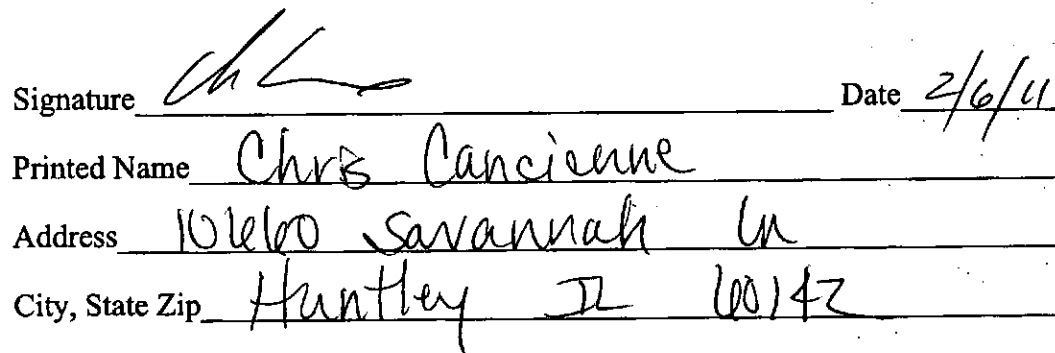 Signature Date 2/6/11
Printed Name Chris Cancienne
Address 10660 Savannah Ln
City, State Zip Huntley IL 60142